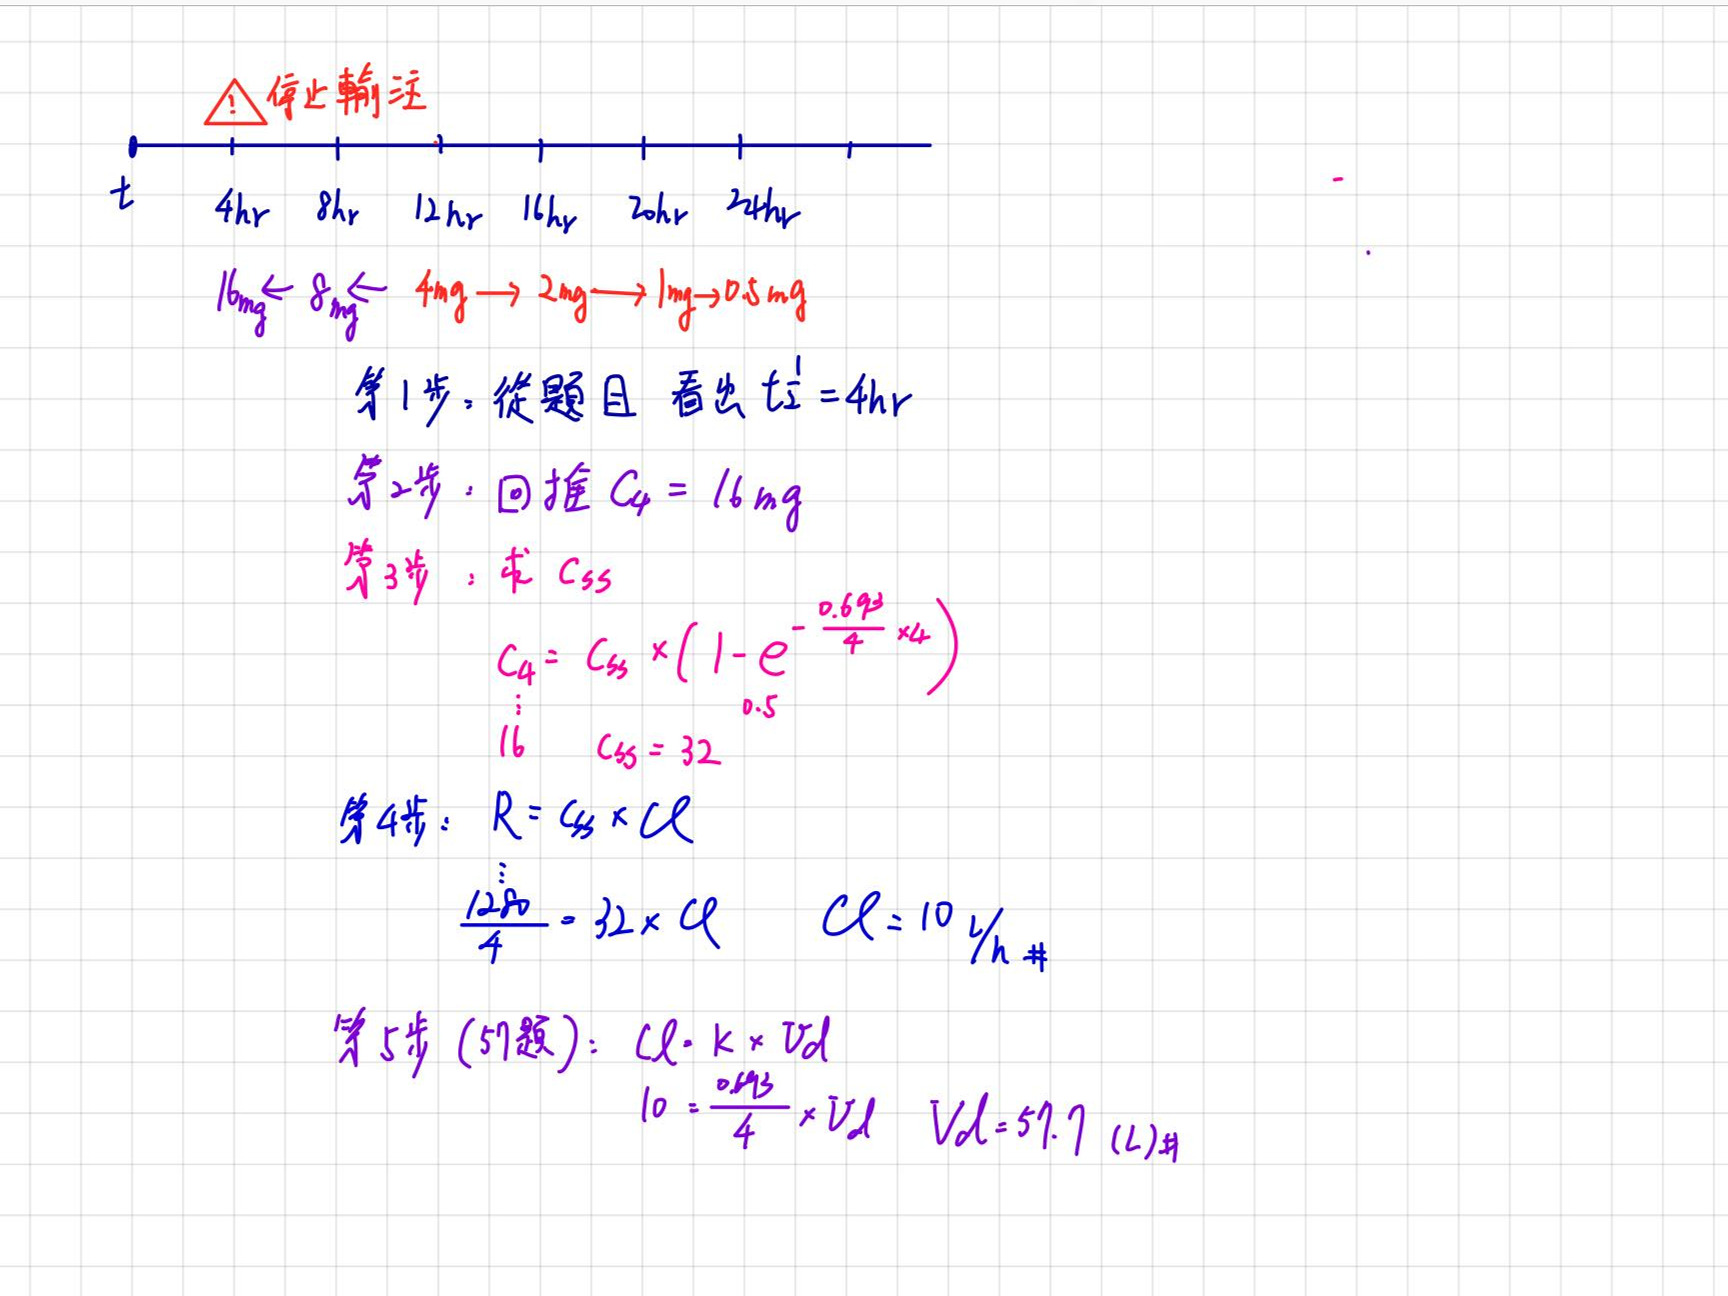 ! 停止輸注
t 4hr 8hr 12hr 16hr 20hr 24hr
16mg ← 8mg ← 4mg → 2mg → 1mg → 0.5mg
第1步：從題目 看出 t½ = 4hr
第2步：回推 C4 = 16mg
第3步：求 Css
C4 = Css × (1 - e^(-0.693/4 × 4))
⋮ 0.5
16 Css = 32
第4步：R = Css × Cl
⋮
1280/4 = 32 × Cl Cl = 10 L/h #
第5步 (57題)：Cl = K × Vd
10 = 0.693/4 × Vd Vd = 57.7 (L) #